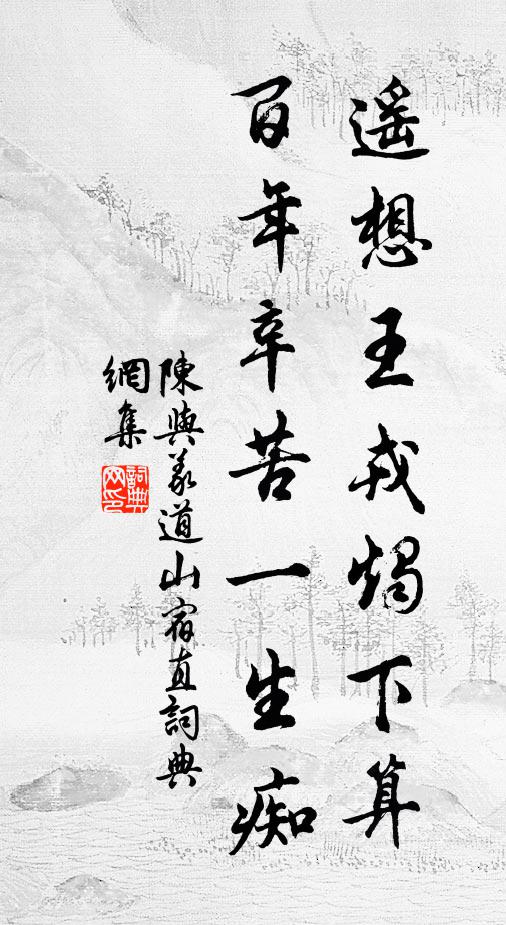 遥想王戎燭下算
百年辛苦一生痴
陳與義道山宿直詞典
網集
詞典
网印